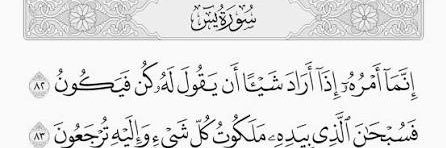 سُورَةُ يسٓ
إِنَّمَآ أَمْرُهُۥٓ إِذَآ أَرَادَ شَيْـًٔا أَن يَقُولَ لَهُۥ كُن فَيَكُونُ ٨٢
فَسُبْحَـٰنَ ٱلَّذِى بِيَدِهِۦ مَلَكُوتُ كُلِّ شَىْءٍ وَإِلَيْهِ تُرْجَعُونَ ٨٣